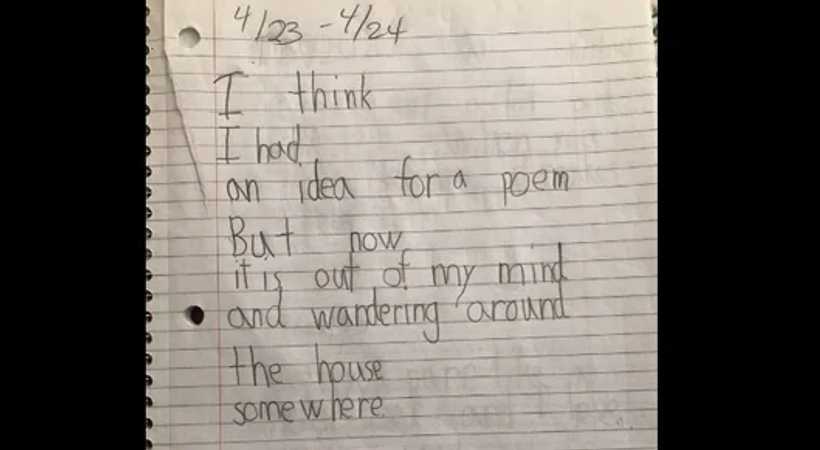 4/23 - 4/24
I think
I had
an idea for a poem
But now
it is out of my mind
and wandering around
the house
somewhere